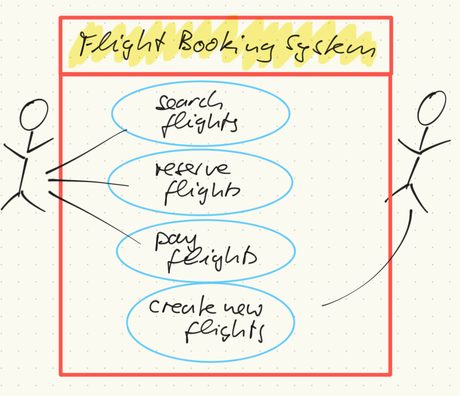 Flight Booking System
search
flights
reserve
flights
pay
flights
create new
flights